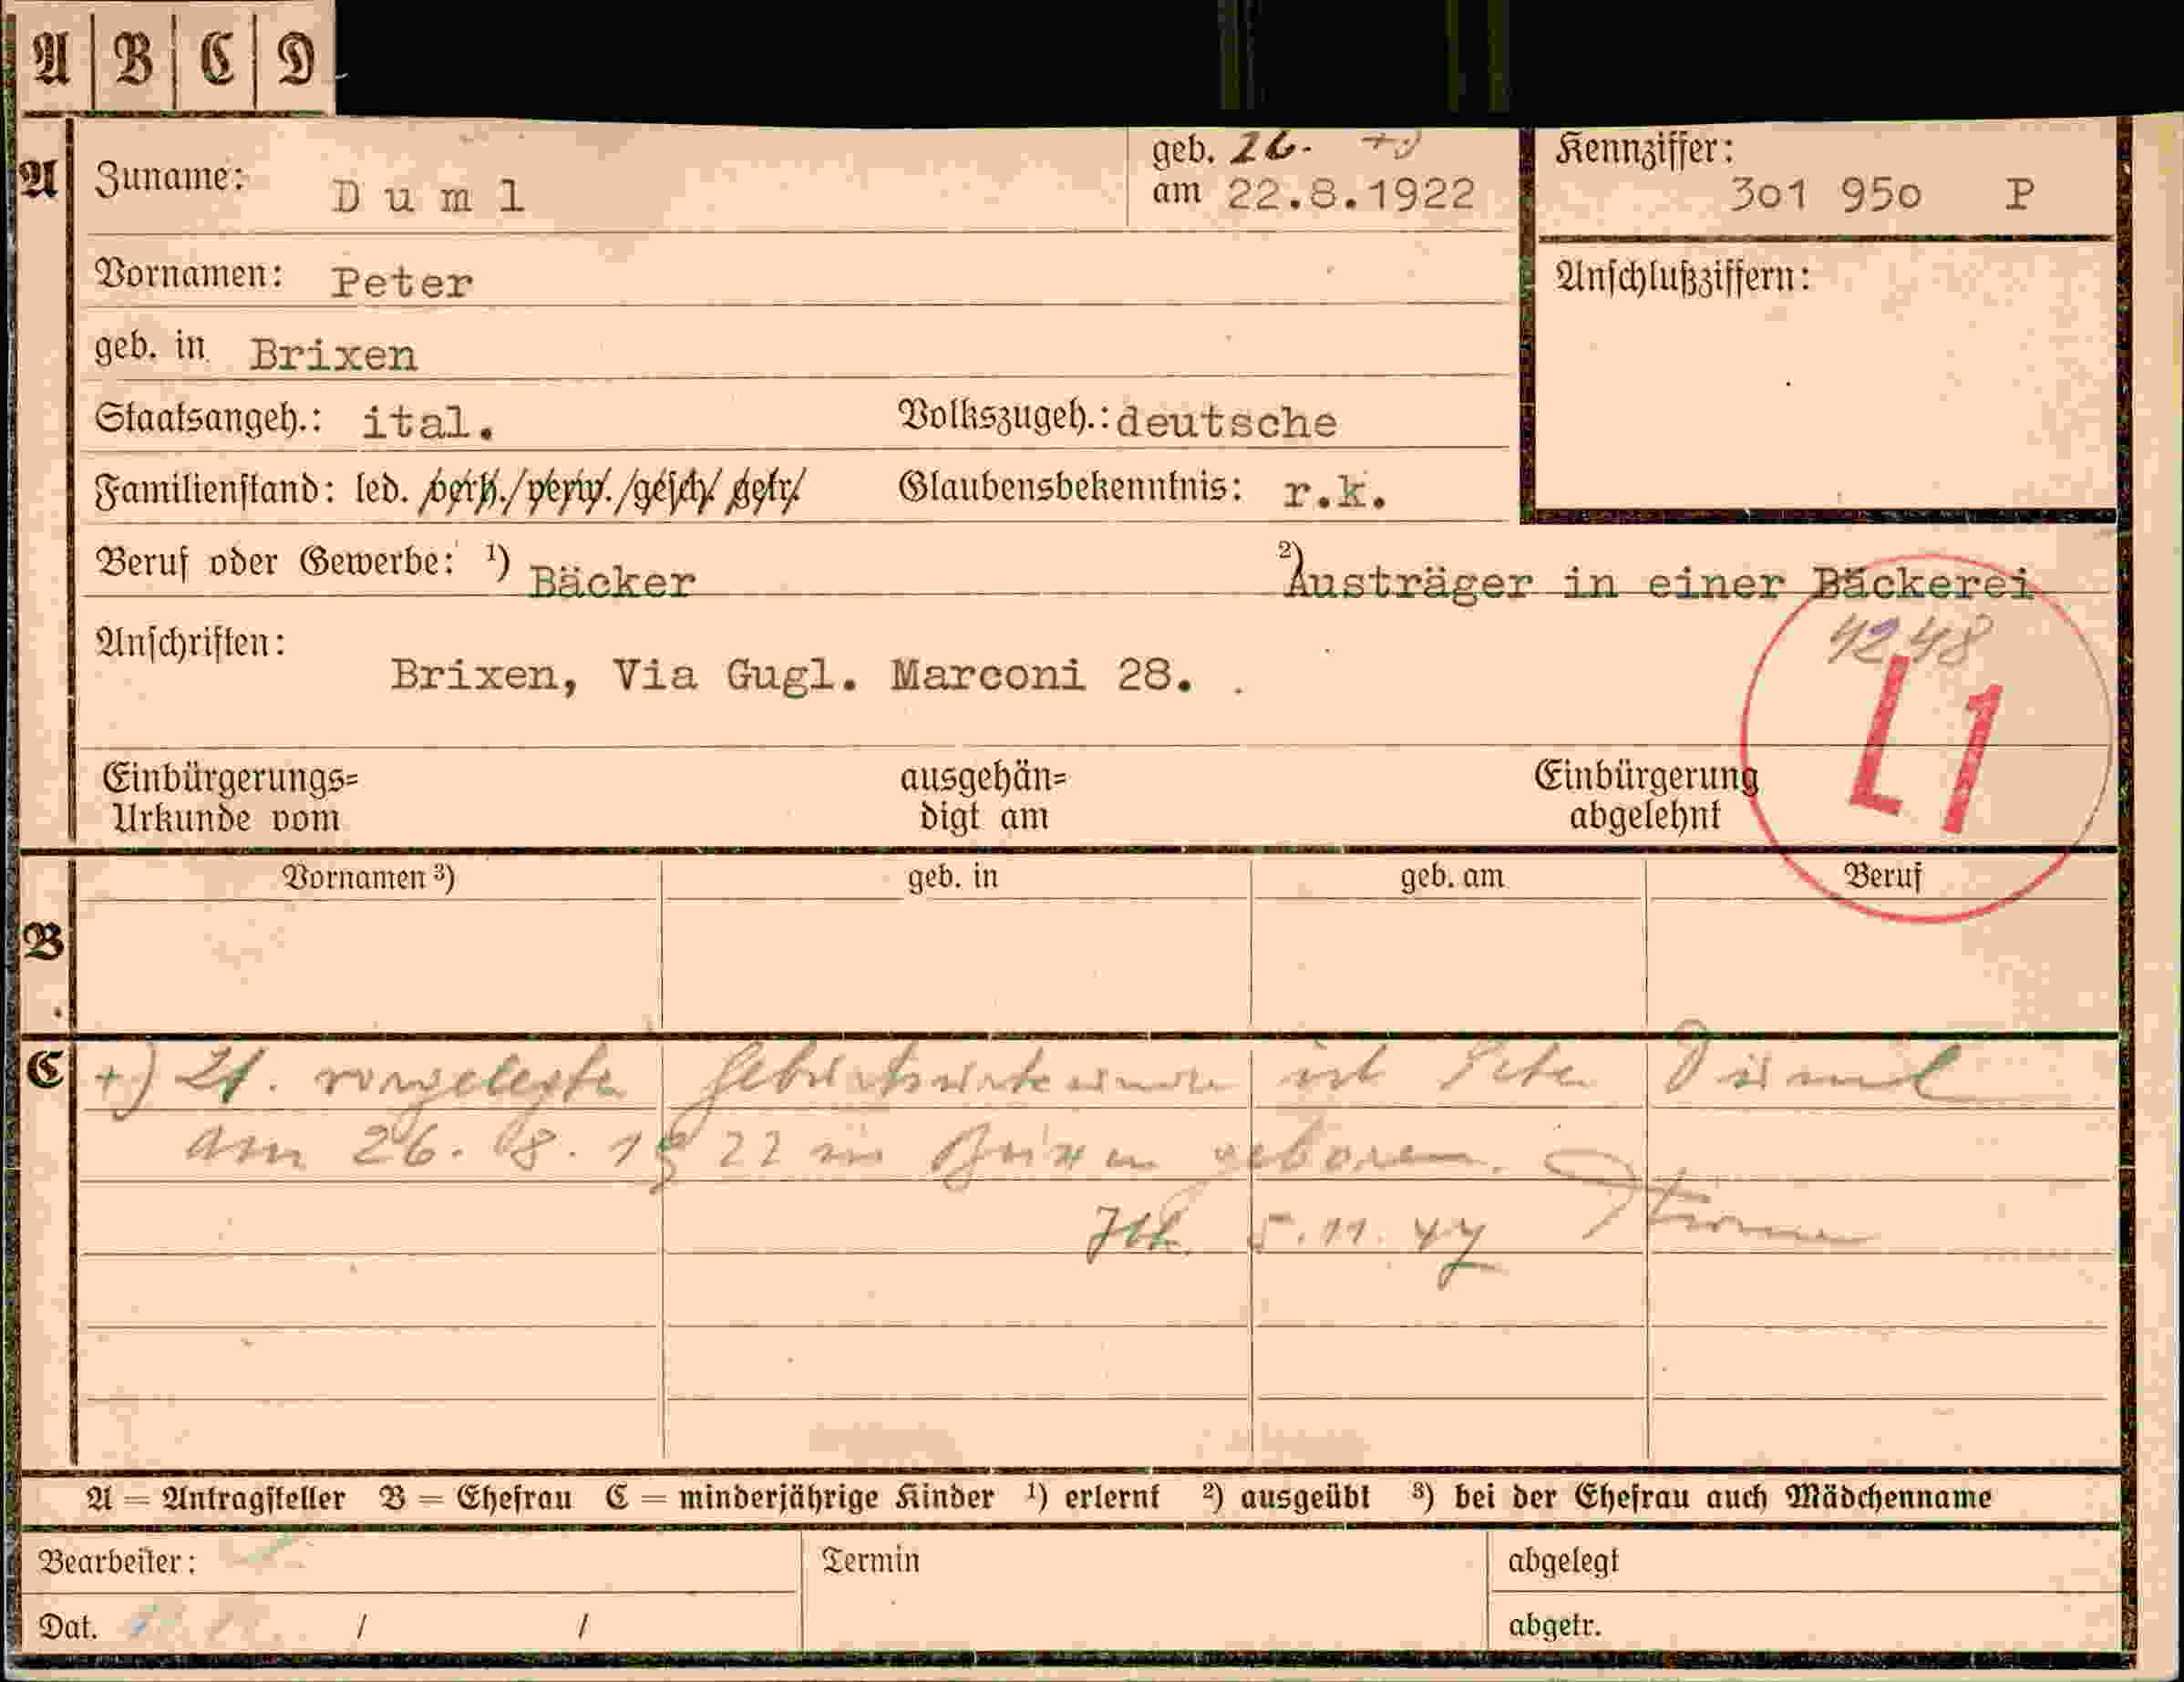 A B C D
A Zuname: Duml geb. 26. +)
am 22.8.1922
Kennziffer:
301 950 P
Vornamen: Peter
Anschlußziffern:
geb. in Brixen
Staatsangeh.: ital. Volkszugeh.: deutsche
Familienstand: led. /verh./verw./gesch/ getr/ Glaubensbekenntnis: r.k.
Beruf oder Gewerbe: 1) Bäcker 2) Austräger in einer Bäckerei
4248
Anschriften:
Brixen, Via Gugl. Marconi 28.
L1
Einbürgerungs= ausgehän= Einbürgerung
Urkunde vom digt am abgelehnt
Vornamen 3) geb. in geb. am Beruf
B
C +) Lt. vorgelegter Geburtsurkunde ist Peter Duml
am 26. 08. 1922 in Brixen geboren.
5.11.
A = Antragsteller B = Ehefrau C = minderjährige Kinder 1) erlernt 2) ausgeübt 3) bei der Ehefrau auch Mädchenname
Bearbeiter: Termin abgelegt
Dat. / / abgetr.